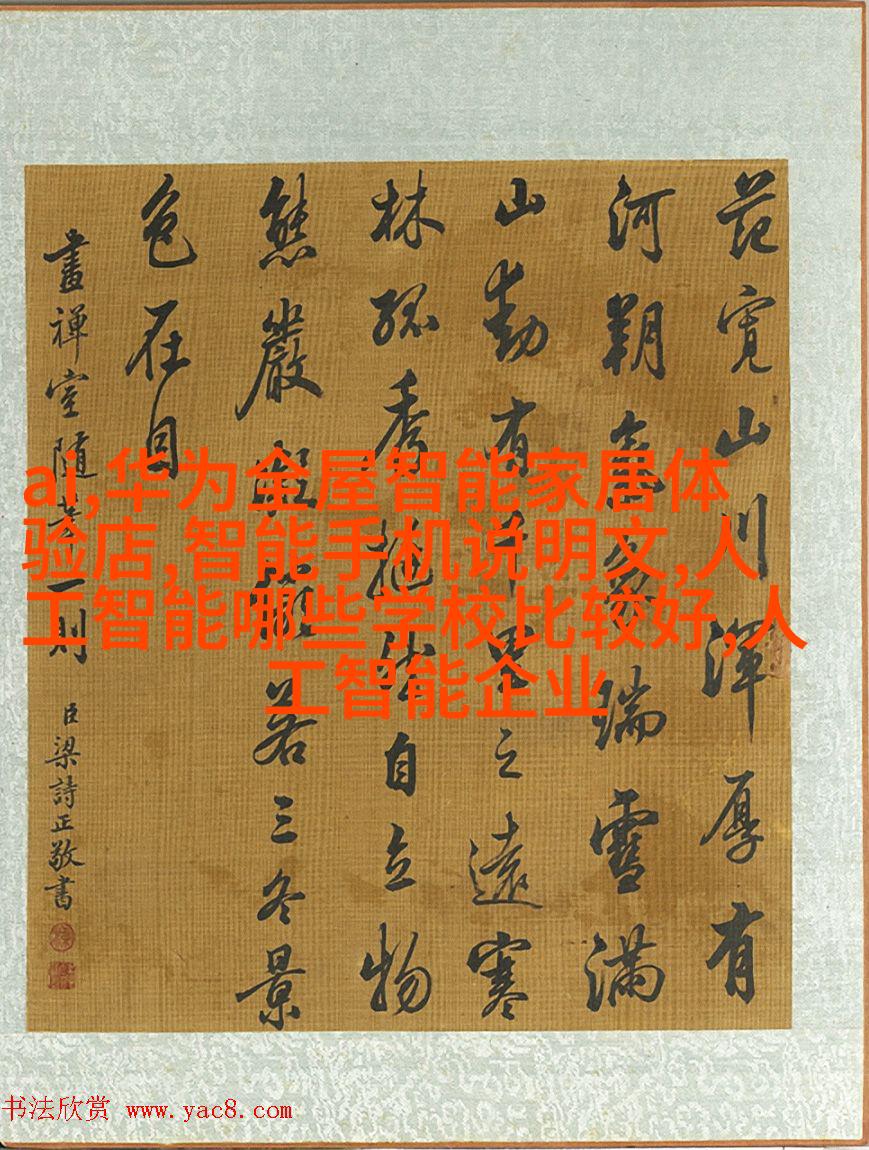 范寬山川渾厚有
河朔氣象瑞雪滿
山動有千里之遠寒
林孤秀挺然自立物
態嚴凝儼若三冬景
色在目
畫禪室隨筆一則 臣梁詩正敬書
ai,华为全屋智能家居体
验店,智能手机说明文,人
工智能哪些学校比较好,人
工智能企业
书法欣赏 www.yac8.com